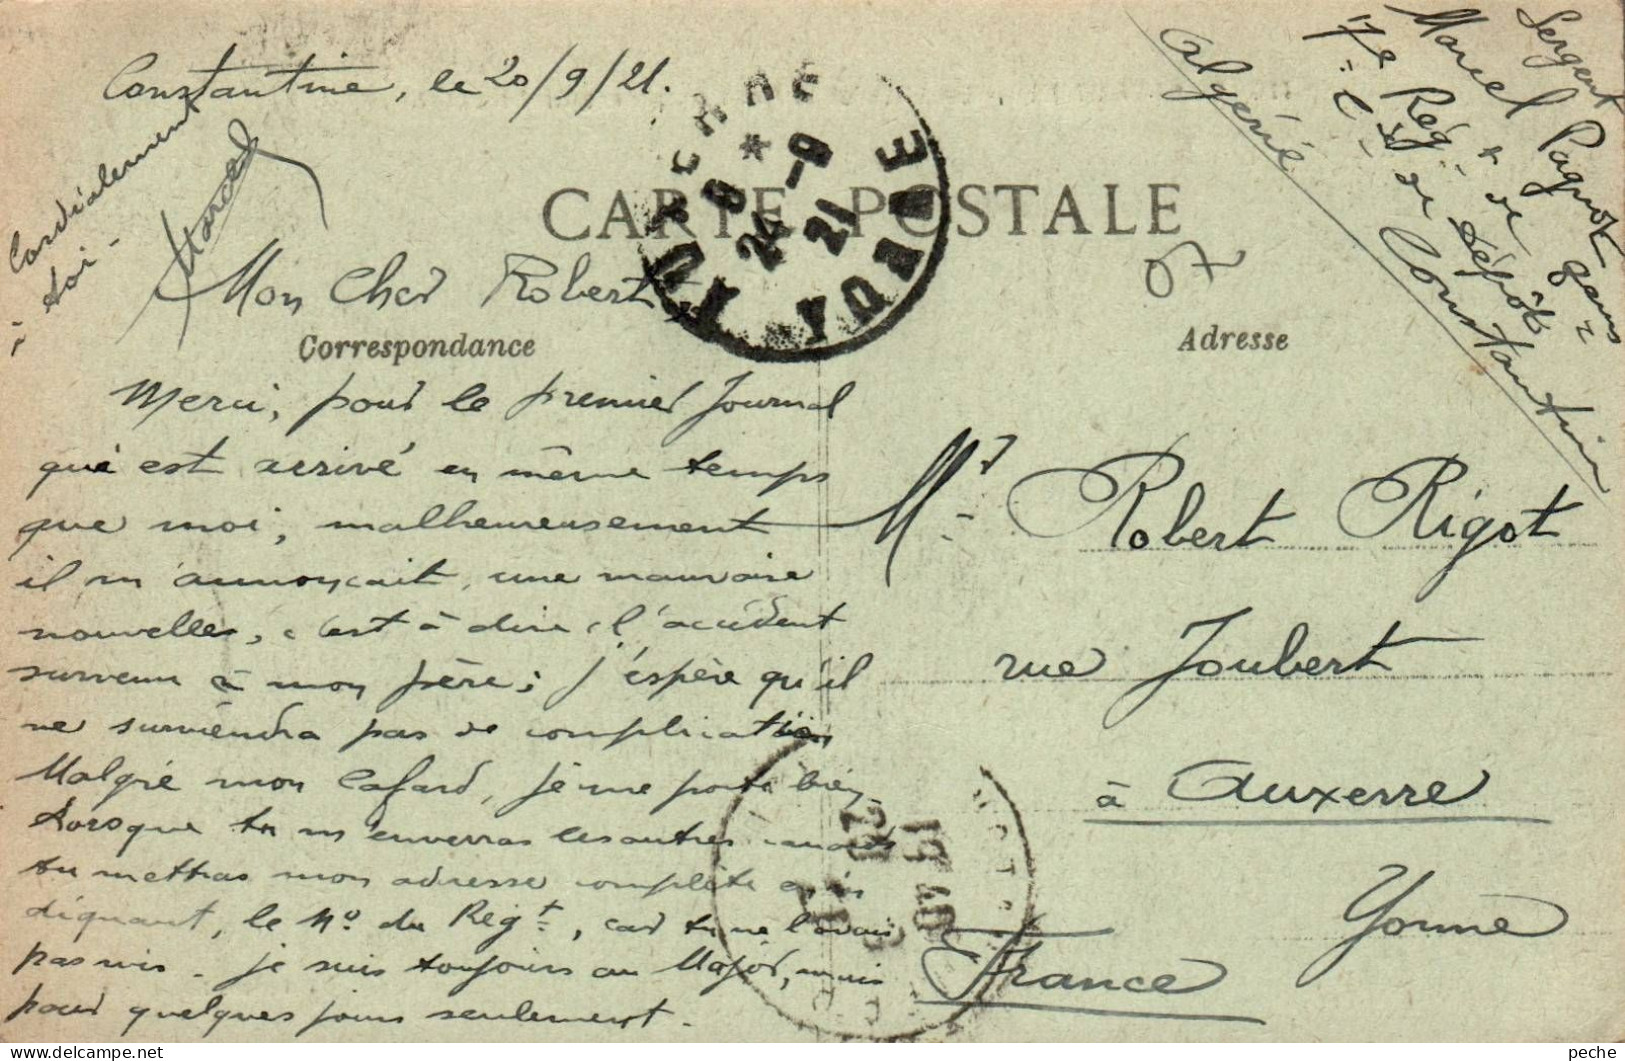 Constantine, le 20/9/21.
Cordialement
à toi -
Marcel
CARTE POSTALE
Mon Cher Robert
Correspondance
Merci, pour le premier Journal
qui est arrivé en même temps
que moi, malheureusement
il m'annonçait, une mauvaise
nouvelles, c'est à dire, l'accident
survenu à mon père; j'espère qu'il
ne surviendra pas de complication
Malgré mon Cafard, je me porte bien.
Lorsque tu m'enverras les autres
tu mettras mon adresse complète en in
diquant, le No du Régt, car tu ne l'avais
pas mis. je suis toujours au Major, mais
pour quelques jours seulement.
AUXERRE
YONNE
24-9
21
Sergent
Marcel
17e Rég.t de
Cie de Dépôt
Constantine
Algérie
Adresse
Mr. Robert Rigot
rue Joubert
à Auxerre
Yonne
France
peche